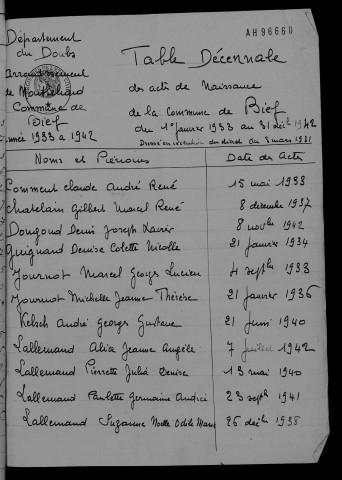 AH96660
Département
du Doubs
Arrondissement
de Montbéliard
Commune de
Bief
Année 1933 à 1942
Table Décennale
des actes de Naissance
de la Commune de Bief
du 1er janvier 1933 au 31 déc 1942
Dressé en exécution du décret du 3 mars 1951
Noms et Prénoms Date des Actes
Comment Claude André René 15 mai 1933
Chatelain Gilbert Marcel René 8 décembre 1937
Dougoud Denis Joseph Xavier 8 novbre 1942
Guignard Denise Colette Nicolle 21 janvier 1934
Journot Marcel Georges Lucien 4 septbre 1933
Journot Michelle Jeanne Thérèse 21 janvier 1936
Kelsch André Georges Gustave 21 juin 1940
Lallemand Alice Jeanne Angèle 7 juillet 1942
Lallemand Pierrette Julia Denise 13 mai 1940
Lallemand Paulette Germaine Andrée 23 septbre 1941
Lallemand Suzanne Noëlle Odile Marie 25 décbre 1938